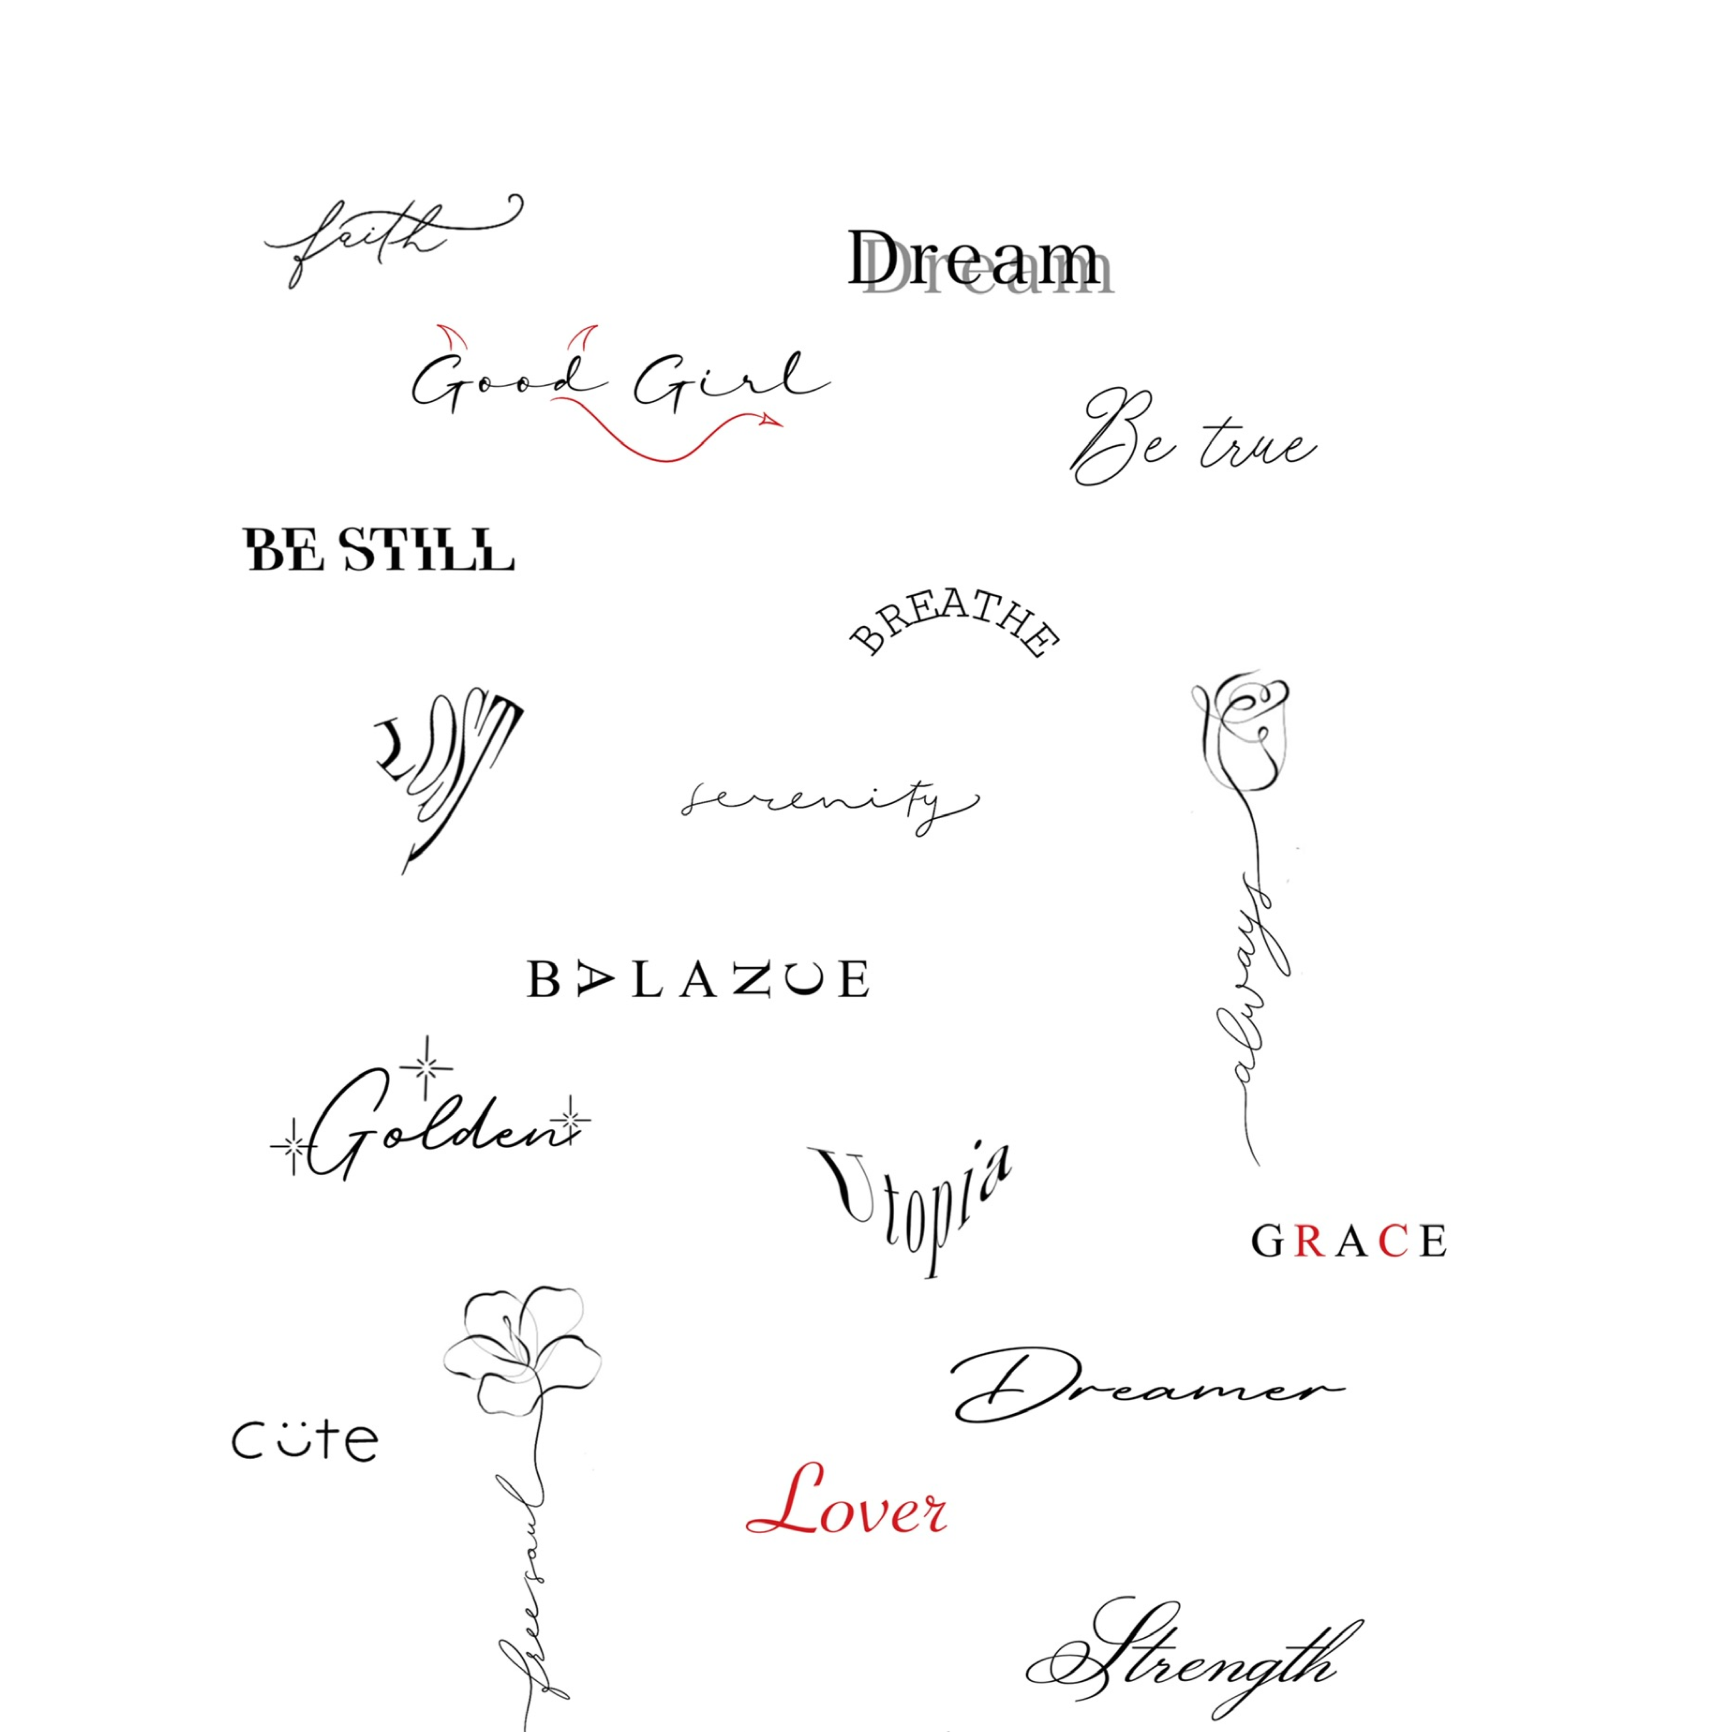 faith
Dream
Good Girl
Be true
BE STILL
BREATHE
LOST
serenity
always
BALANCE
Golden
Utopia
GRACE
Dreamer
cüte
Lover
free soul
Strength